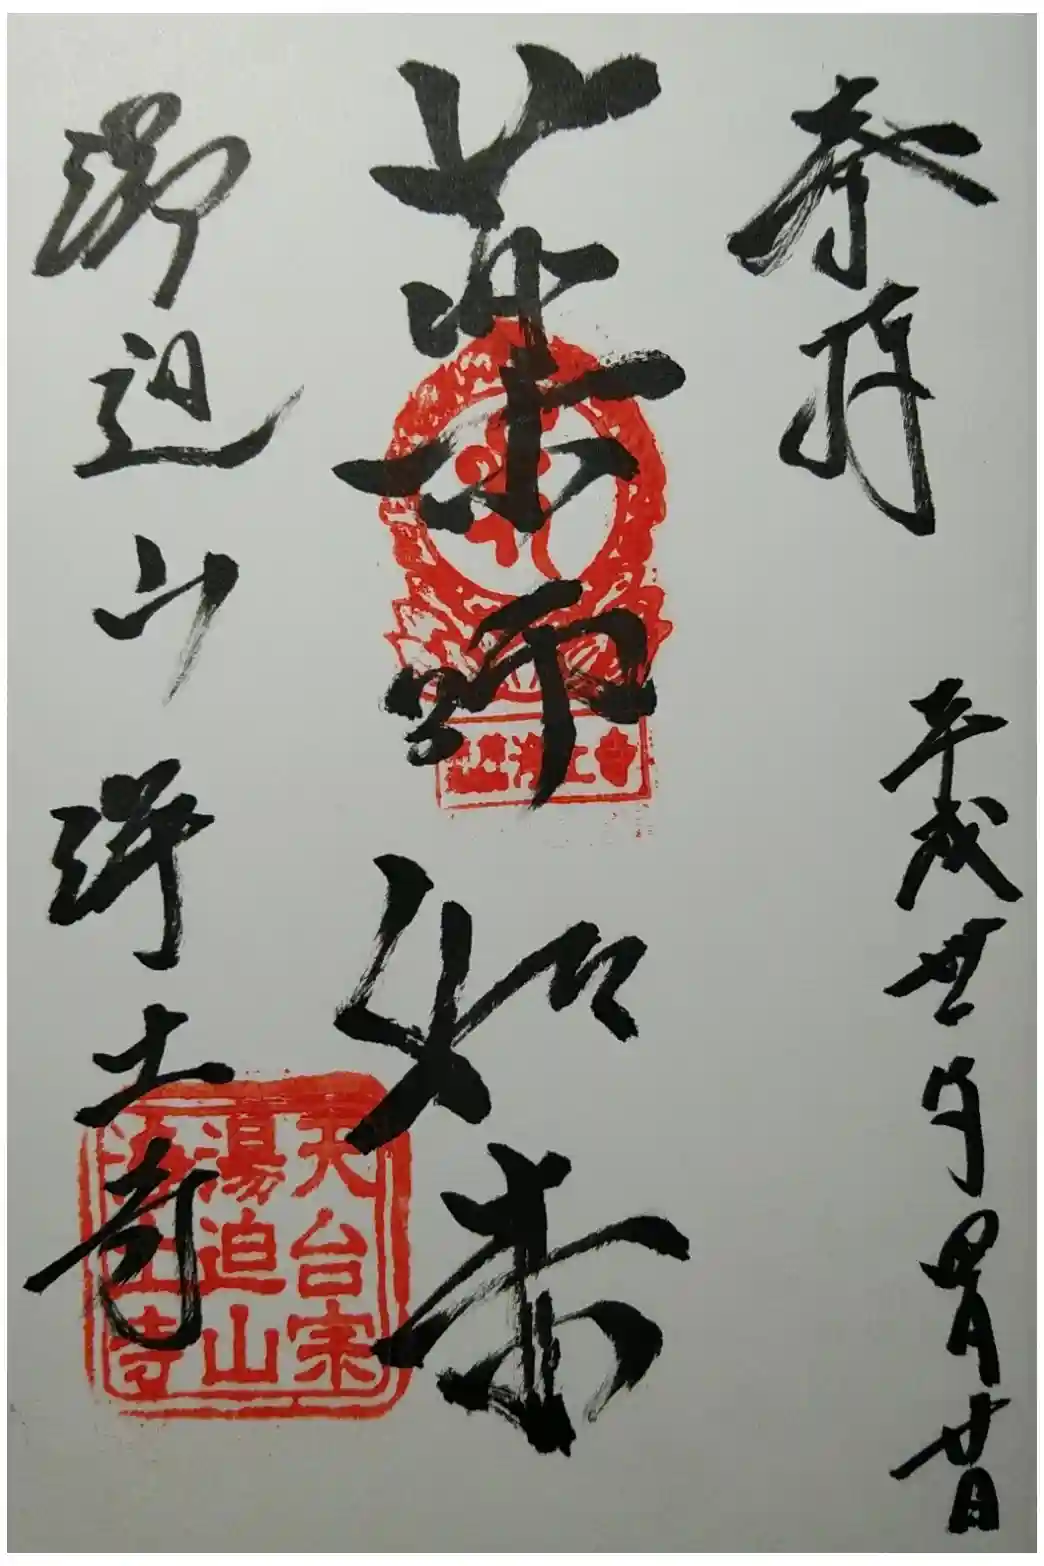 奉拝
平成卅一年四月廿日
薬師如来
湯迫山浄土寺
浄土寺
天台宗
湯迫山
浄土寺